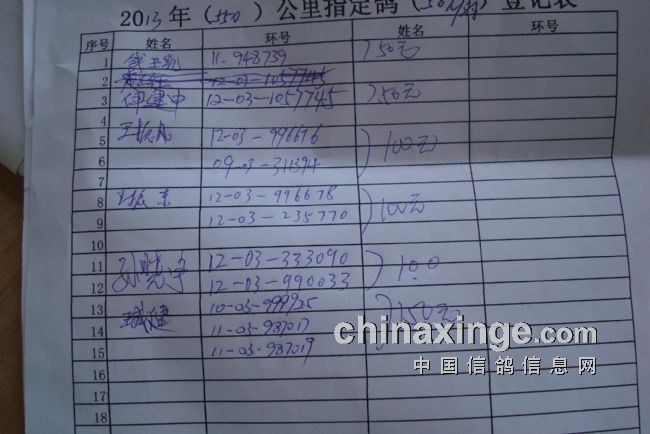 2013年（550）公里指定鸽（50/羽）登记表
序号 姓名 环号 姓名 环号
1 11-948739 50元
2 12-03-1057745
3 12-03-1057745 50元
4
5 王振 12-03-996676 100元
6 09-03-311394
7
8 王振东 12-03-996678 100元
9 12-03-235770
10
11 孙晓宇 12-03-333090 100
12 12-03-990033
13 10-03-999925 150元
14 11-03-987017
15 11-03-987019
16
17
18
chinaxinge.com
中国信鸽信息网